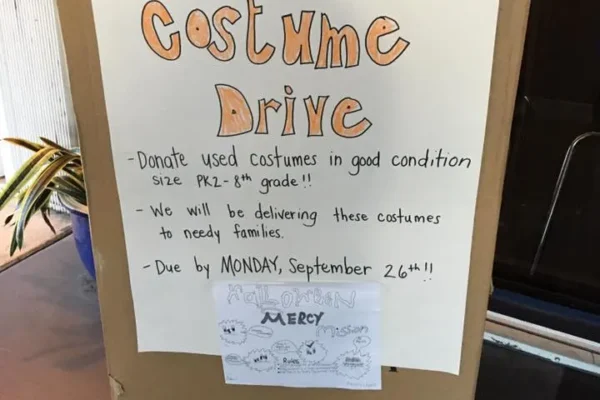 Costume
Drive
- Donate used costumes in good condition
size PK2 - 8th grade!!
- We will be delivering these costumes
to needy families.
- Due by MONDAY, September 26th!!
HALLOWEEN
MERCY
Mission
Rules